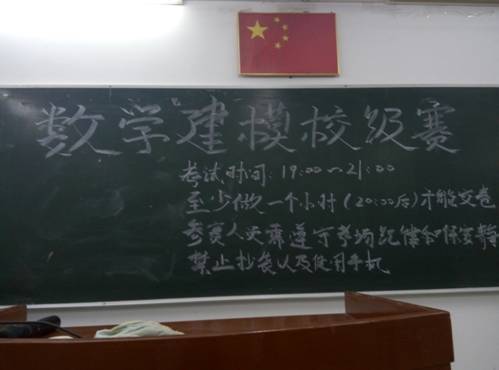 数学建模校级赛
考试时间：19:00～21:00
至少做一个小时(20:00后)才能交卷
参赛人员需遵守考场纪律和保密
禁止抄袭以及使用手机